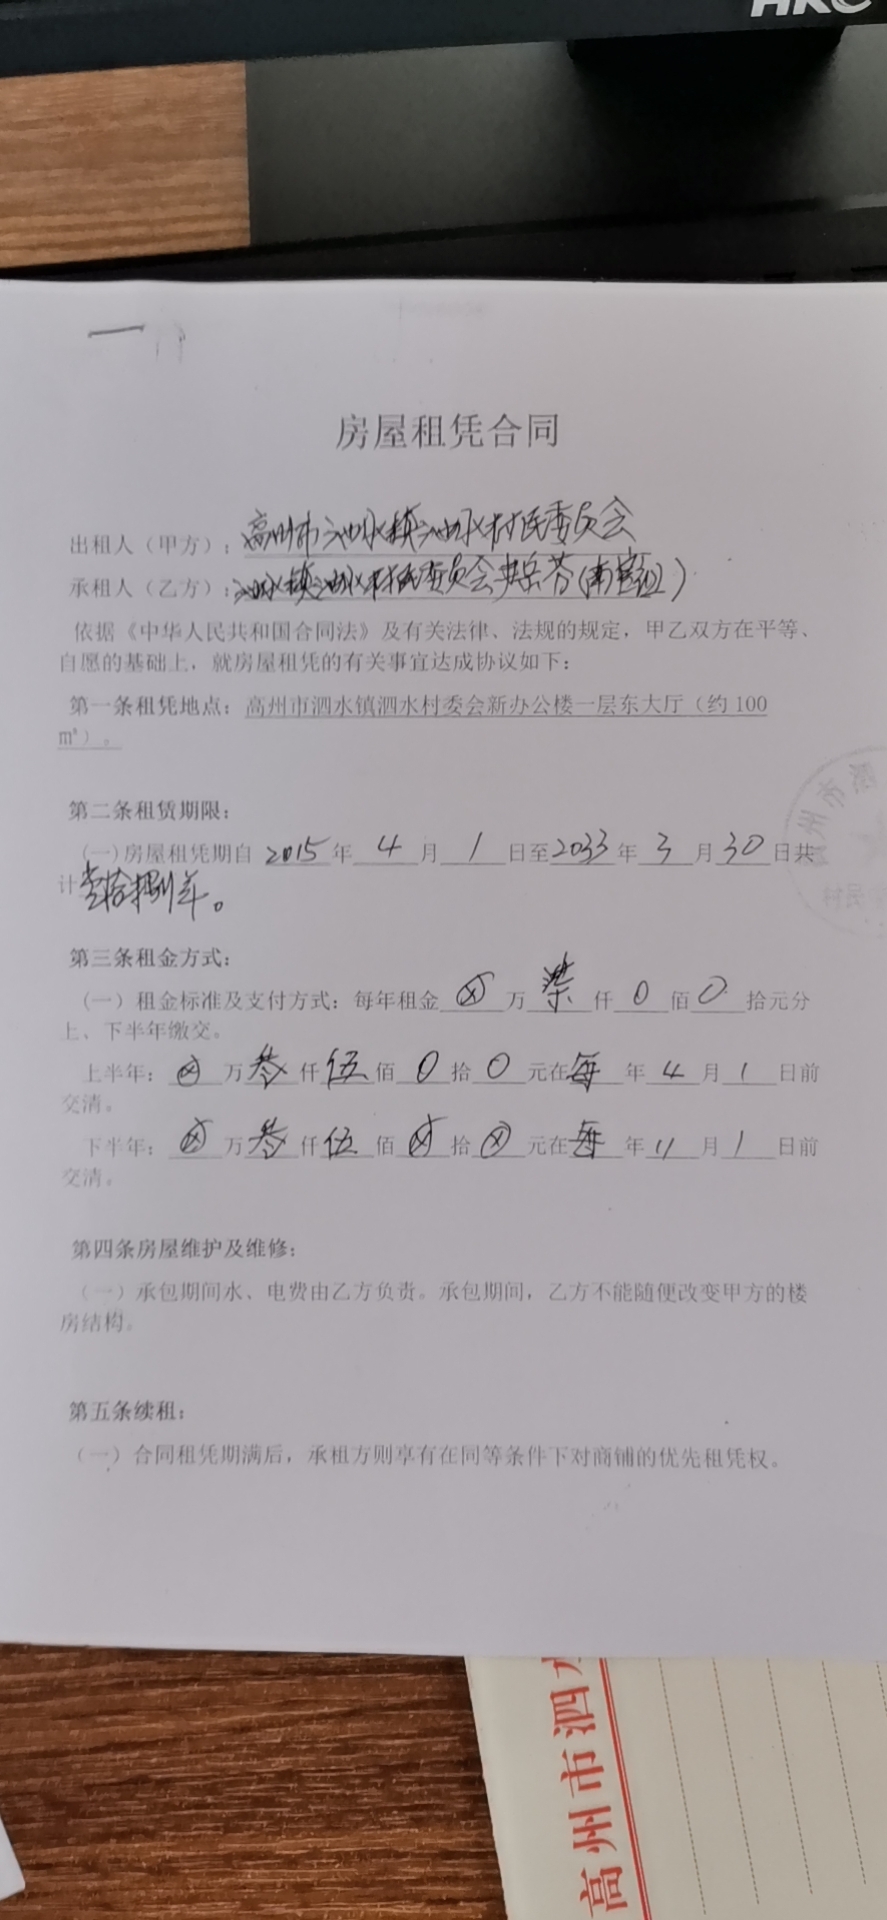 HKC
房屋租凭合同
出租人（甲方）：高州市泗水镇泗水村民委员会
承租人（乙方）：泗水镇泗水村民委员会 (南 )
依据《中华人民共和国合同法》及有关法律、法规的规定，甲乙双方在平等、
自愿的基础上，就房屋租凭的有关事宜达成协议如下：
第一条租凭地点：高州市泗水镇泗水村委会新办公楼一层东大厅（约 100
㎡）。
第二条租赁期限：
（一）房屋租凭期自 2015 年 4 月 1 日至 2033 年 3 月 30 日共
计壹拾捌年。
第三条租金方式：
（一）租金标准及支付方式：每年租金 ⊗ 万 柒 仟 0 佰 0 拾元分
上、下半年缴交。
上半年： ⊗ 万 叁 仟 伍 佰 0 拾 0 元在 每 年 4 月 1 日前
交清。
下半年： ⊗ 万 叁 仟 伍 佰 ⊗ 拾 ⊗ 元在 每 年 11 月 1 日前
交清。
第四条房屋维护及维修：
（一）承包期间水、电费由乙方负责。承包期间，乙方不能随便改变甲方的楼
房结构。
第五条续租：
（一）合同租凭期满后，承租方则享有在同等条件下对商铺的优先租凭权。
州市泗
村民
高州市泗水